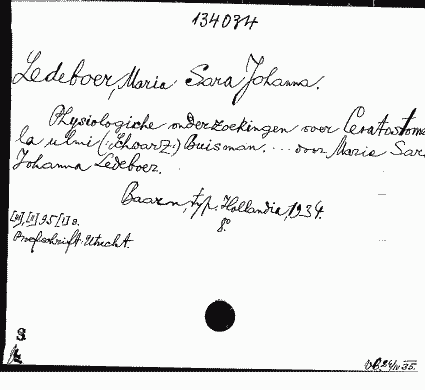 134034
Ledeboer, Maria Sara Johanna.
Physiologiche onderzoekingen over Ceratostomel
la ulmi (Schwarz) Buisman. ... door Maria Sara
Johanna Ledeboer.
Baarn, typ. Hollandia, 1934.
8º
95 [1] s.
Proefschrift. Utrecht.